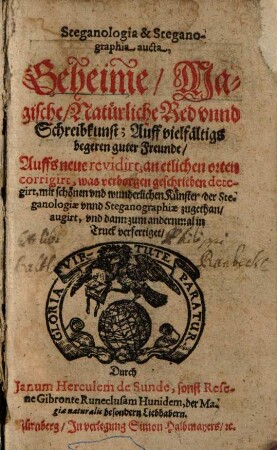 Steganologia & Stegano-
graphia aucta,
Geheime/ Ma-
gische/ Natürliche Red vnnd
Schreibkunst; Auff vielfältigs
begeren guter Freunde/
Auffs neue revidirt, an etlichen orten
corrigirt, was verborgen geschrieben dete-
girt, mit schönen vnd wunderlichen Künsten der Ste-
ganologiæ vnnd Steganographiæ zugethan/
augirt, vnd dann zum andernmal in
Truck verfertiget/
GLORIA VIRTUTE PARATUR
Durch
Janum Herculem de Sunde, sonst Rese-
ne Gibronte Runeclusam Hunidem, der Ma-
giæ naturalis besondern Liebhabern.
Nürnberg/ In verlegung Simon Halbmayers/ ꝛc.